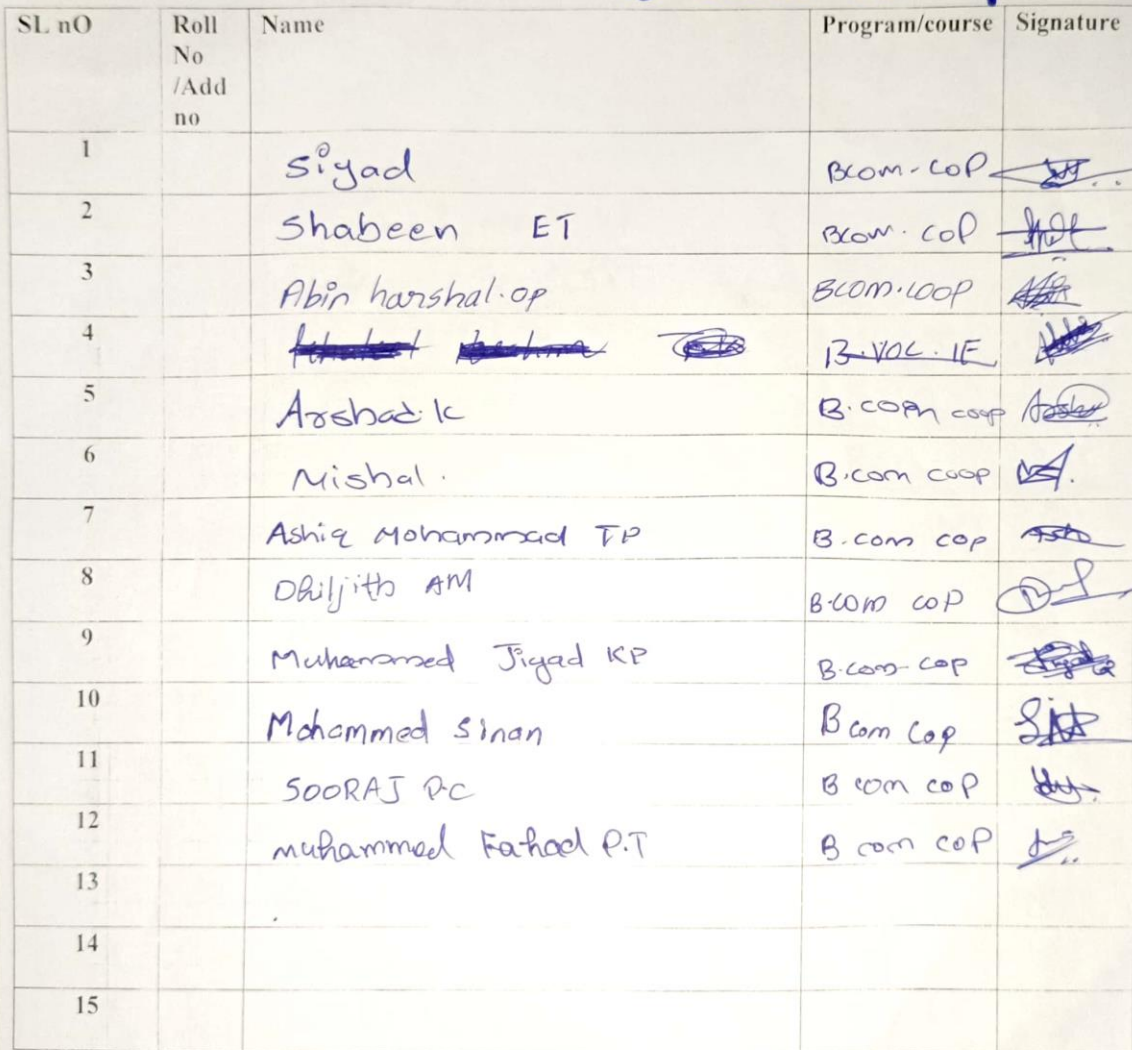 SL nO Roll No /Add no Name Program/course Signature
1 Siyad Bcom-coP
2 Shabeen ET Bcom. coP
3 Abin harshal.op BCOM.COOP
4 B.VOC.IE
5 Arshad.k B.com coop
6 Nishal. B.com coop
7 Ashiq Mohammad TP B.com cop
8 Dhiljith AM B.com coP
9 Muhammed Jiyad KP B.com-cop
10 Mohammed Sinan B com Cop
11 SOORAJ P.C B com coP
12 muhammed Fahad P.T B com coP
13
14
15